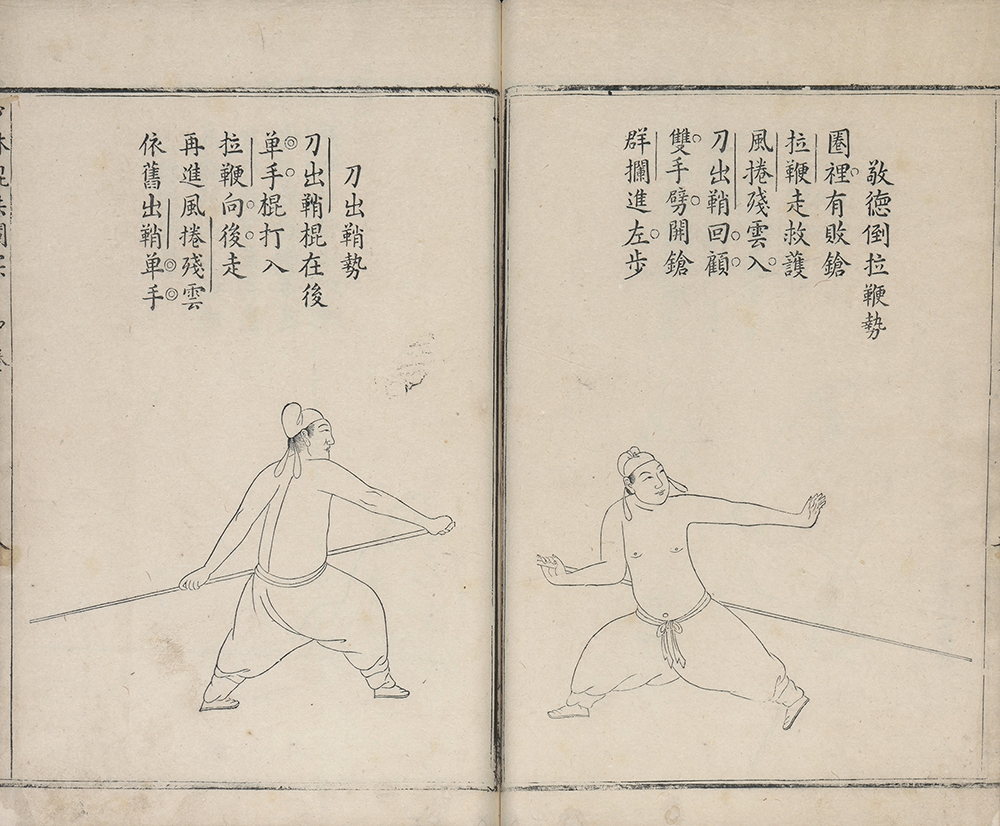 敬德倒拉鞭勢
圈裡有敗鎗
拉鞭走救護
風捲殘雲入
刀出鞘回顧
雙手劈開鎗
群攔進左步
刀出鞘勢
刀出鞘棍在後
单手棍打入
拉鞭向後走
再進風捲殘雲
依舊出鞘单手